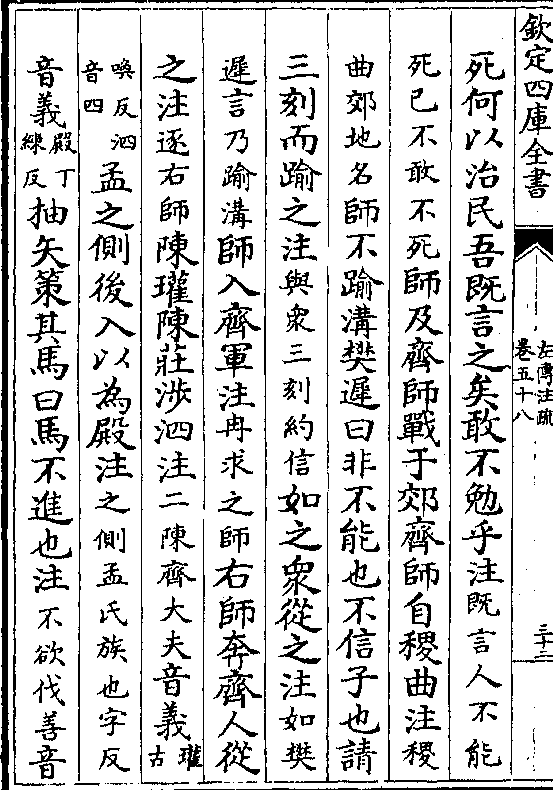 欽定四庫全書
左傳注疏
卷五十八
三十三
死何以治民吾既言之矣敢不勉乎注既言人不能
死已不敢不死師及齊師戰于郊齊師自稷曲注稷
曲郊地名師不踰溝樊遲曰非不能也不信子也請
三刻而踰之注與衆三刻約信如之衆從之注如樊
遲言乃踰溝師入齊軍注冉求之師右師奔齊人從
之注逐右師陳瓘陳莊涉泗注二陳齊大夫音義瓘古
喚反泗音四孟之側後入以為殿注之側孟氏族也字反
音義殿丁練反抽矢策其馬曰馬不進也注不欲伐善音